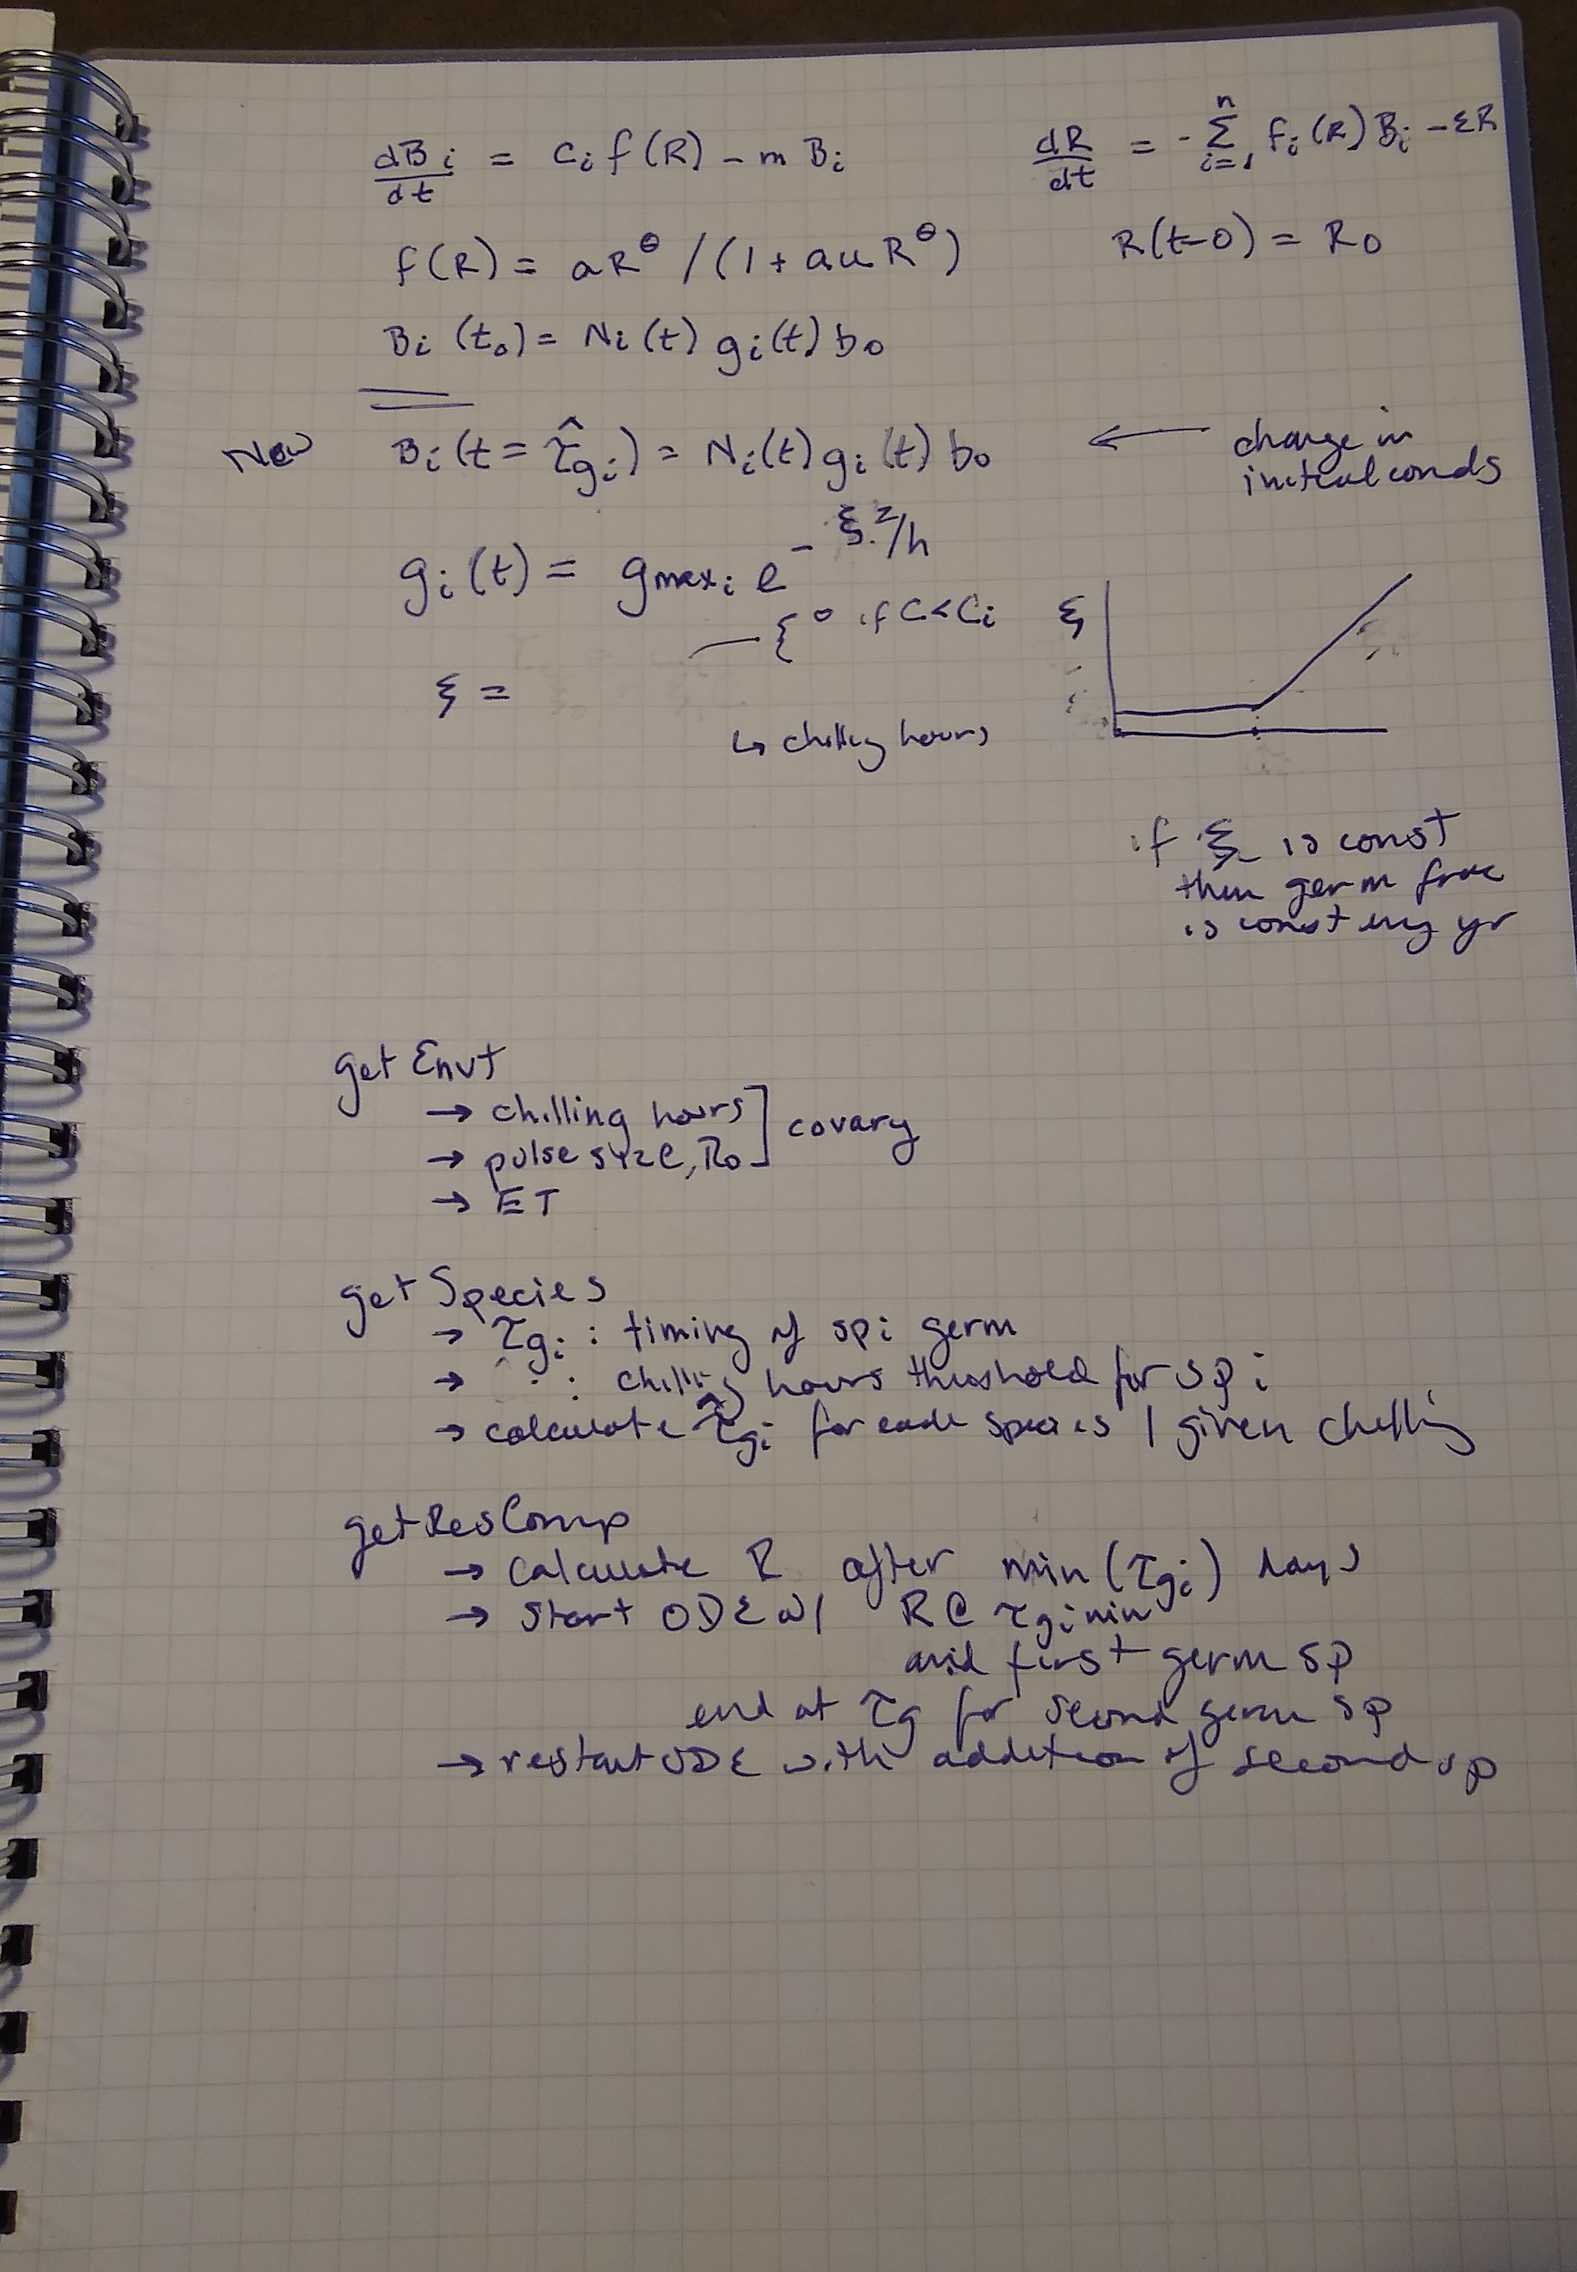 dBi/dt = ci f(R) - m Bi    dR/dt = -Σ_{i=1}^{n} fi(R) Bi - εR
f(R) = aR^θ / (1 + auR^θ)    R(t=0) = R0
Bi (t0) = Ni(t) gi(t) b0
New Bi(t = τ̂gi) = Ni(t) gi(t) b0 ← change in
initial conds
gi(t) = gmaxi e^{-ξ²/h}
{ 0 if C<Ci    ξ
ξ =
↳ chilling hours
if ξ is const
then germ frac
is const evry yr
get Envt
→ chilling hours ] covary
→ pulse size, R0
→ ET
get Species
→ τgi : timing of sp i germ
→ : chilling hours threshold for sp i
→ calculate τ̂gi for each species | given chilling
getResComp
→ calculate R after min(τgi) days
→ start ODE w/ R @ τgimin
and first germ sp
end at τg for second germ sp
→ restart ODE with addition of second sp